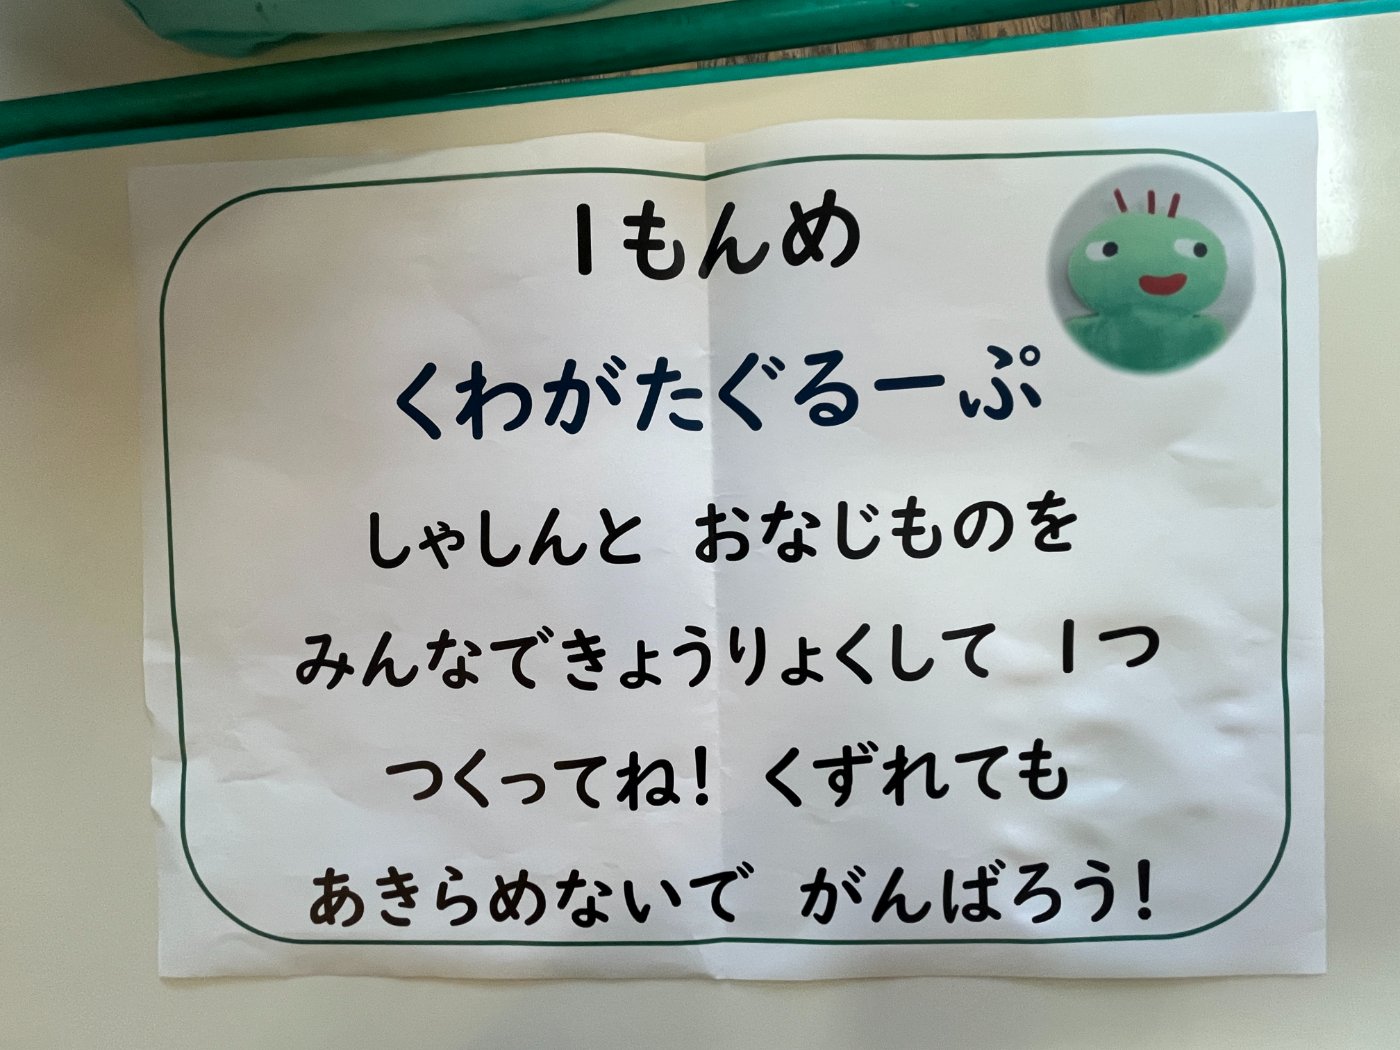 1もんめ
くわがたぐるーぷ
しゃしんと おなじものを
みんなできょうりょくして 1つ
つくってね! くずれても
あきらめないで がんばろう!